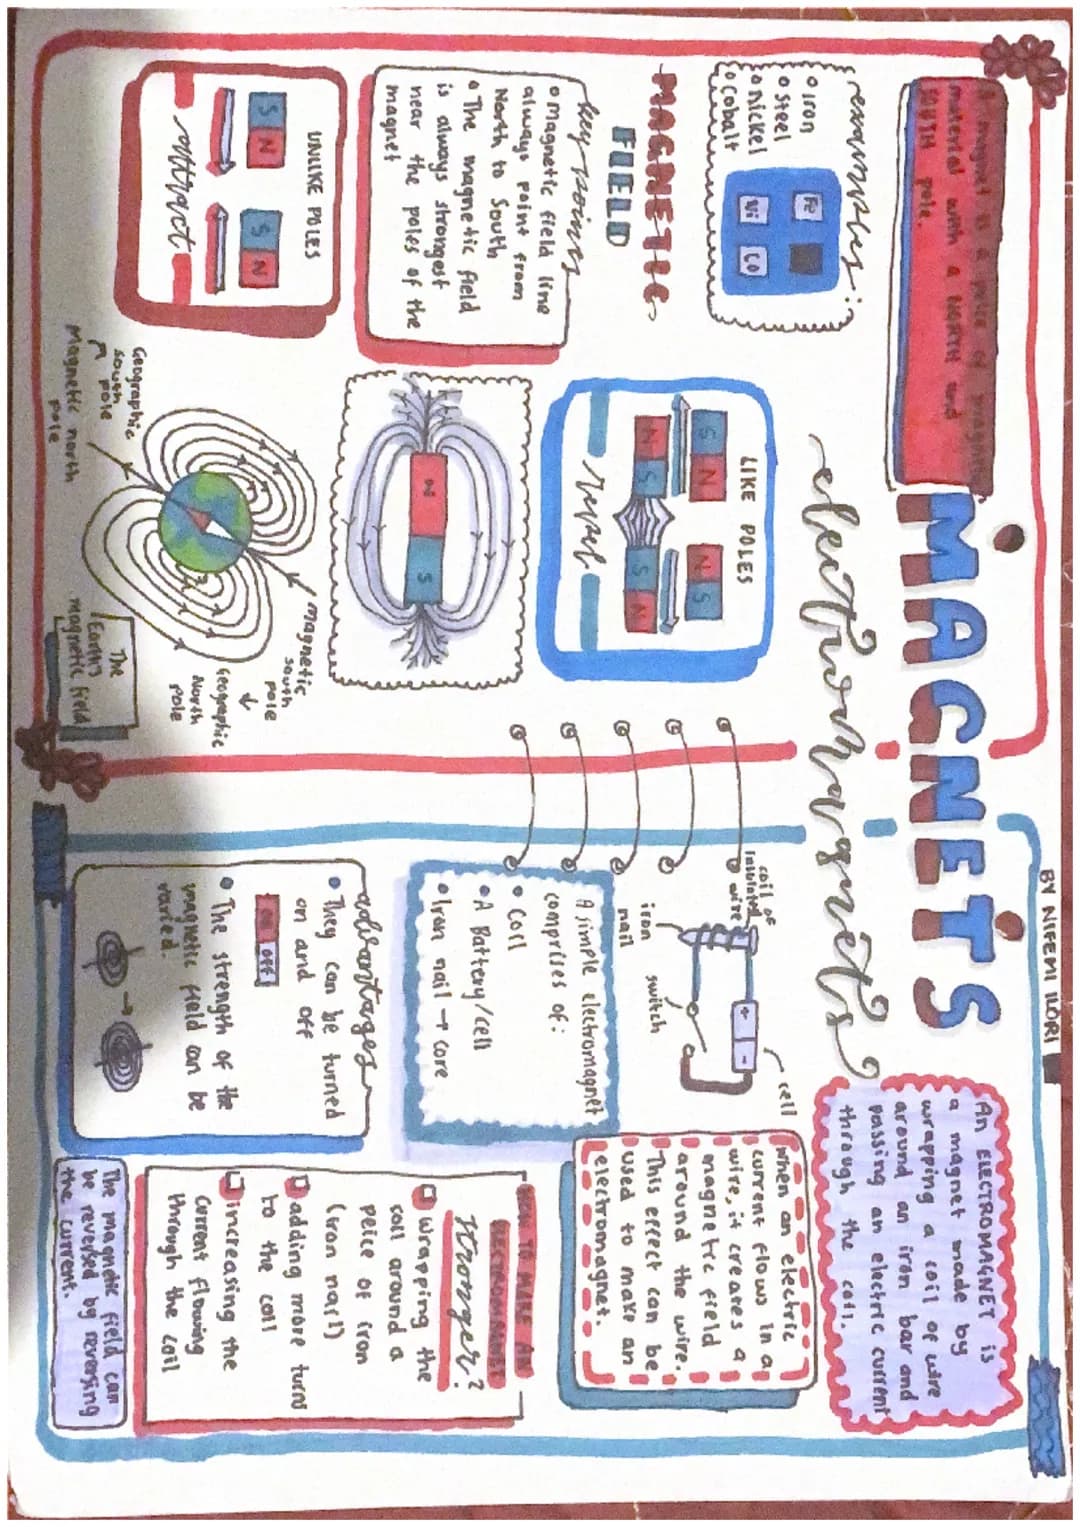 BY NIFEMI ILORI
MAGNETS
electromagnets
A magnet is a piece of
material with a NORTH and
SOUTH pole.
examples:
Iron
Steel
nickel
Cobalt
Fe
Ni
Co
MAGNETIC
FIELD
key points
magnetic field line
always point from
North to South
The magnetic field
is always strongest
near the poles of the
magnet
UNLIKE POLES
S N
S N
attract
LIKE POLES
S N
N S
N S
S N
repel
N S
Geographic
south pole
Magnetic north
pole
magnetic
south
pole
Geographic
North
pole
The
Earth's
magnetic field
An ELECTROMAGNET is
a magnet made by
wrapping a coil of wire
around an iron bar and
passing an electric current
through the coil.
coil of
insulated
wire
iron
nail
switch
cell
+ -
When an electric
current flows in a
wire, it creates a
magnetic field
around the wire.
This effect can be
used to make an
electromagnet.
A simple electromagnet
comprises of:
Coil
A Battery/cell
Iron nail → core
advantages
They can be turned
on and off
on off
The strength of the
magnetic field can be
varied.
HOW TO MAKE AN
ELECTROMAGNET
stronger?
wrapping the
coil around a
peice of iron
(iron nail)
adding more turns
to the coil
increasing the
current flowing
through the coil
The magnetic field can
be reversed by reversing
the current.